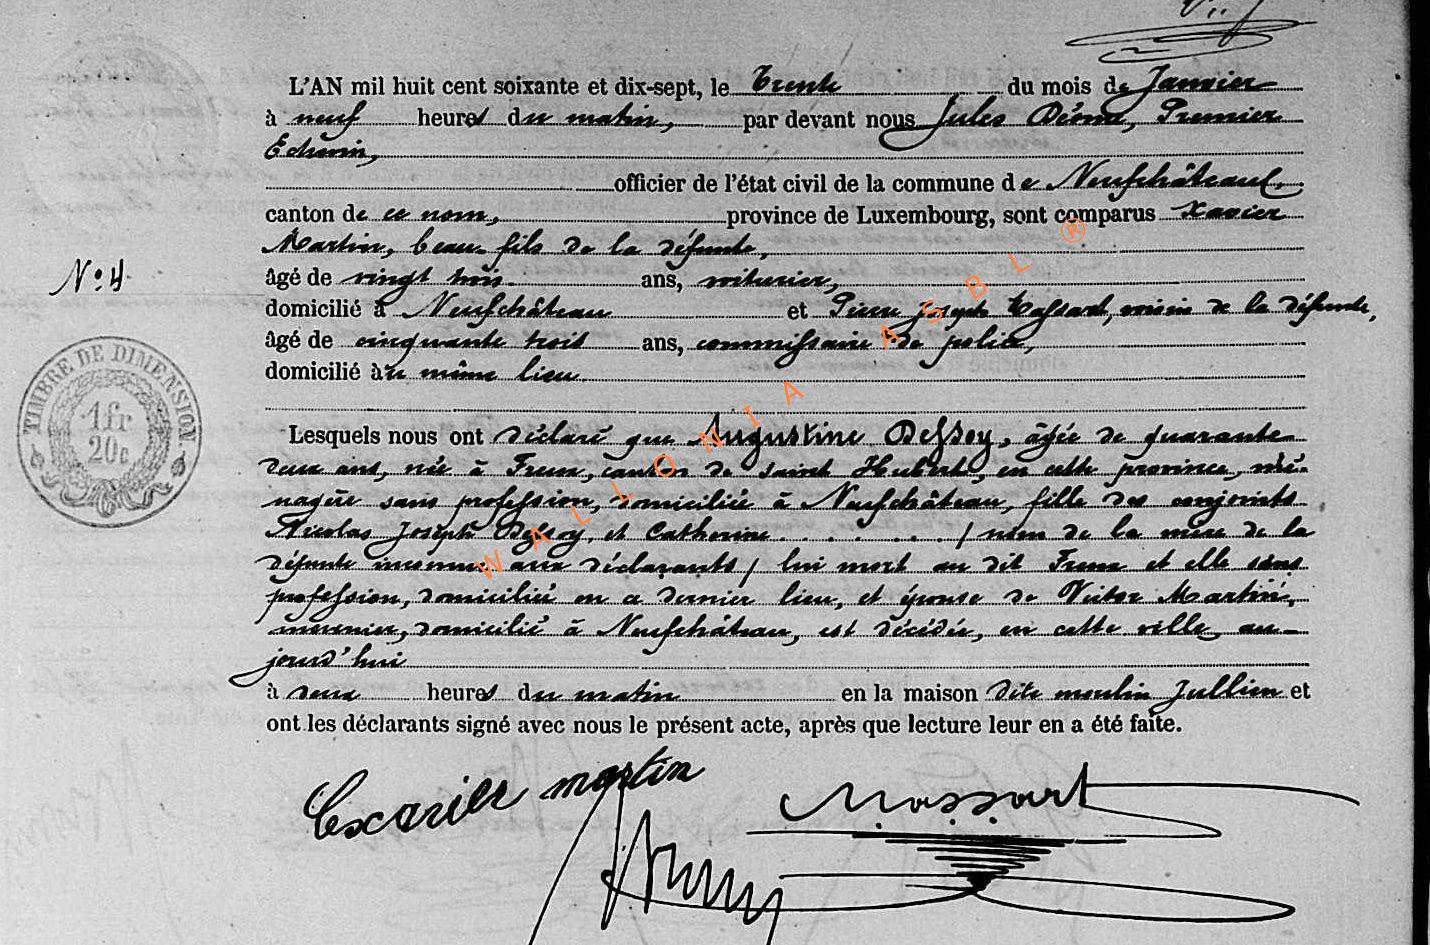 L'AN mil huit cent soixante et dix-sept, le Trente du mois de Janvier
à neuf heures du matin, par devant nous Jules Déome, Premier
Echevin,
officier de l'état civil de la commune de Neufchâteau,
canton de ce nom, province de Luxembourg, sont comparus Xavier
Martin, beau fils de la défunte,
N° 4
âgé de vingt trois ans, voiturier,
domicilié à Neufchâteau et Pierre Joseph Massart, voisin de la défunte,
âgé de cinquante trois ans, commissaire de police,
domicilié au même lieu
TIMBRE DE DIMENSION.
1 fr
20 c
Lesquels nous ont déclaré que Augustine Dessoy, âgée de quarante
deux ans, née à Freux, canton de Saint Hubert, en cette province, mé-
nagère sans profession, domiciliée à Neufchâteau, fille des conjoints
Nicolas Joseph Dessoy, et Catherine . . . . . . . / nom de la mère de la
défunte inconnu aux déclarants / lui mort au dit Freux et elle sans
profession, domiciliée en ce dernier lieu, et épouse de Victor Martin,
meunier, domicilié à Neufchâteau, est décédée, en cette ville, au-
jourd'hui
à deux heures du matin en la maison dite moulin Jullien et
ont les déclarants signé avec nous le présent acte, après que lecture leur en a été faite.
Exavier martin
Massart
WALLONIA ASBL ®